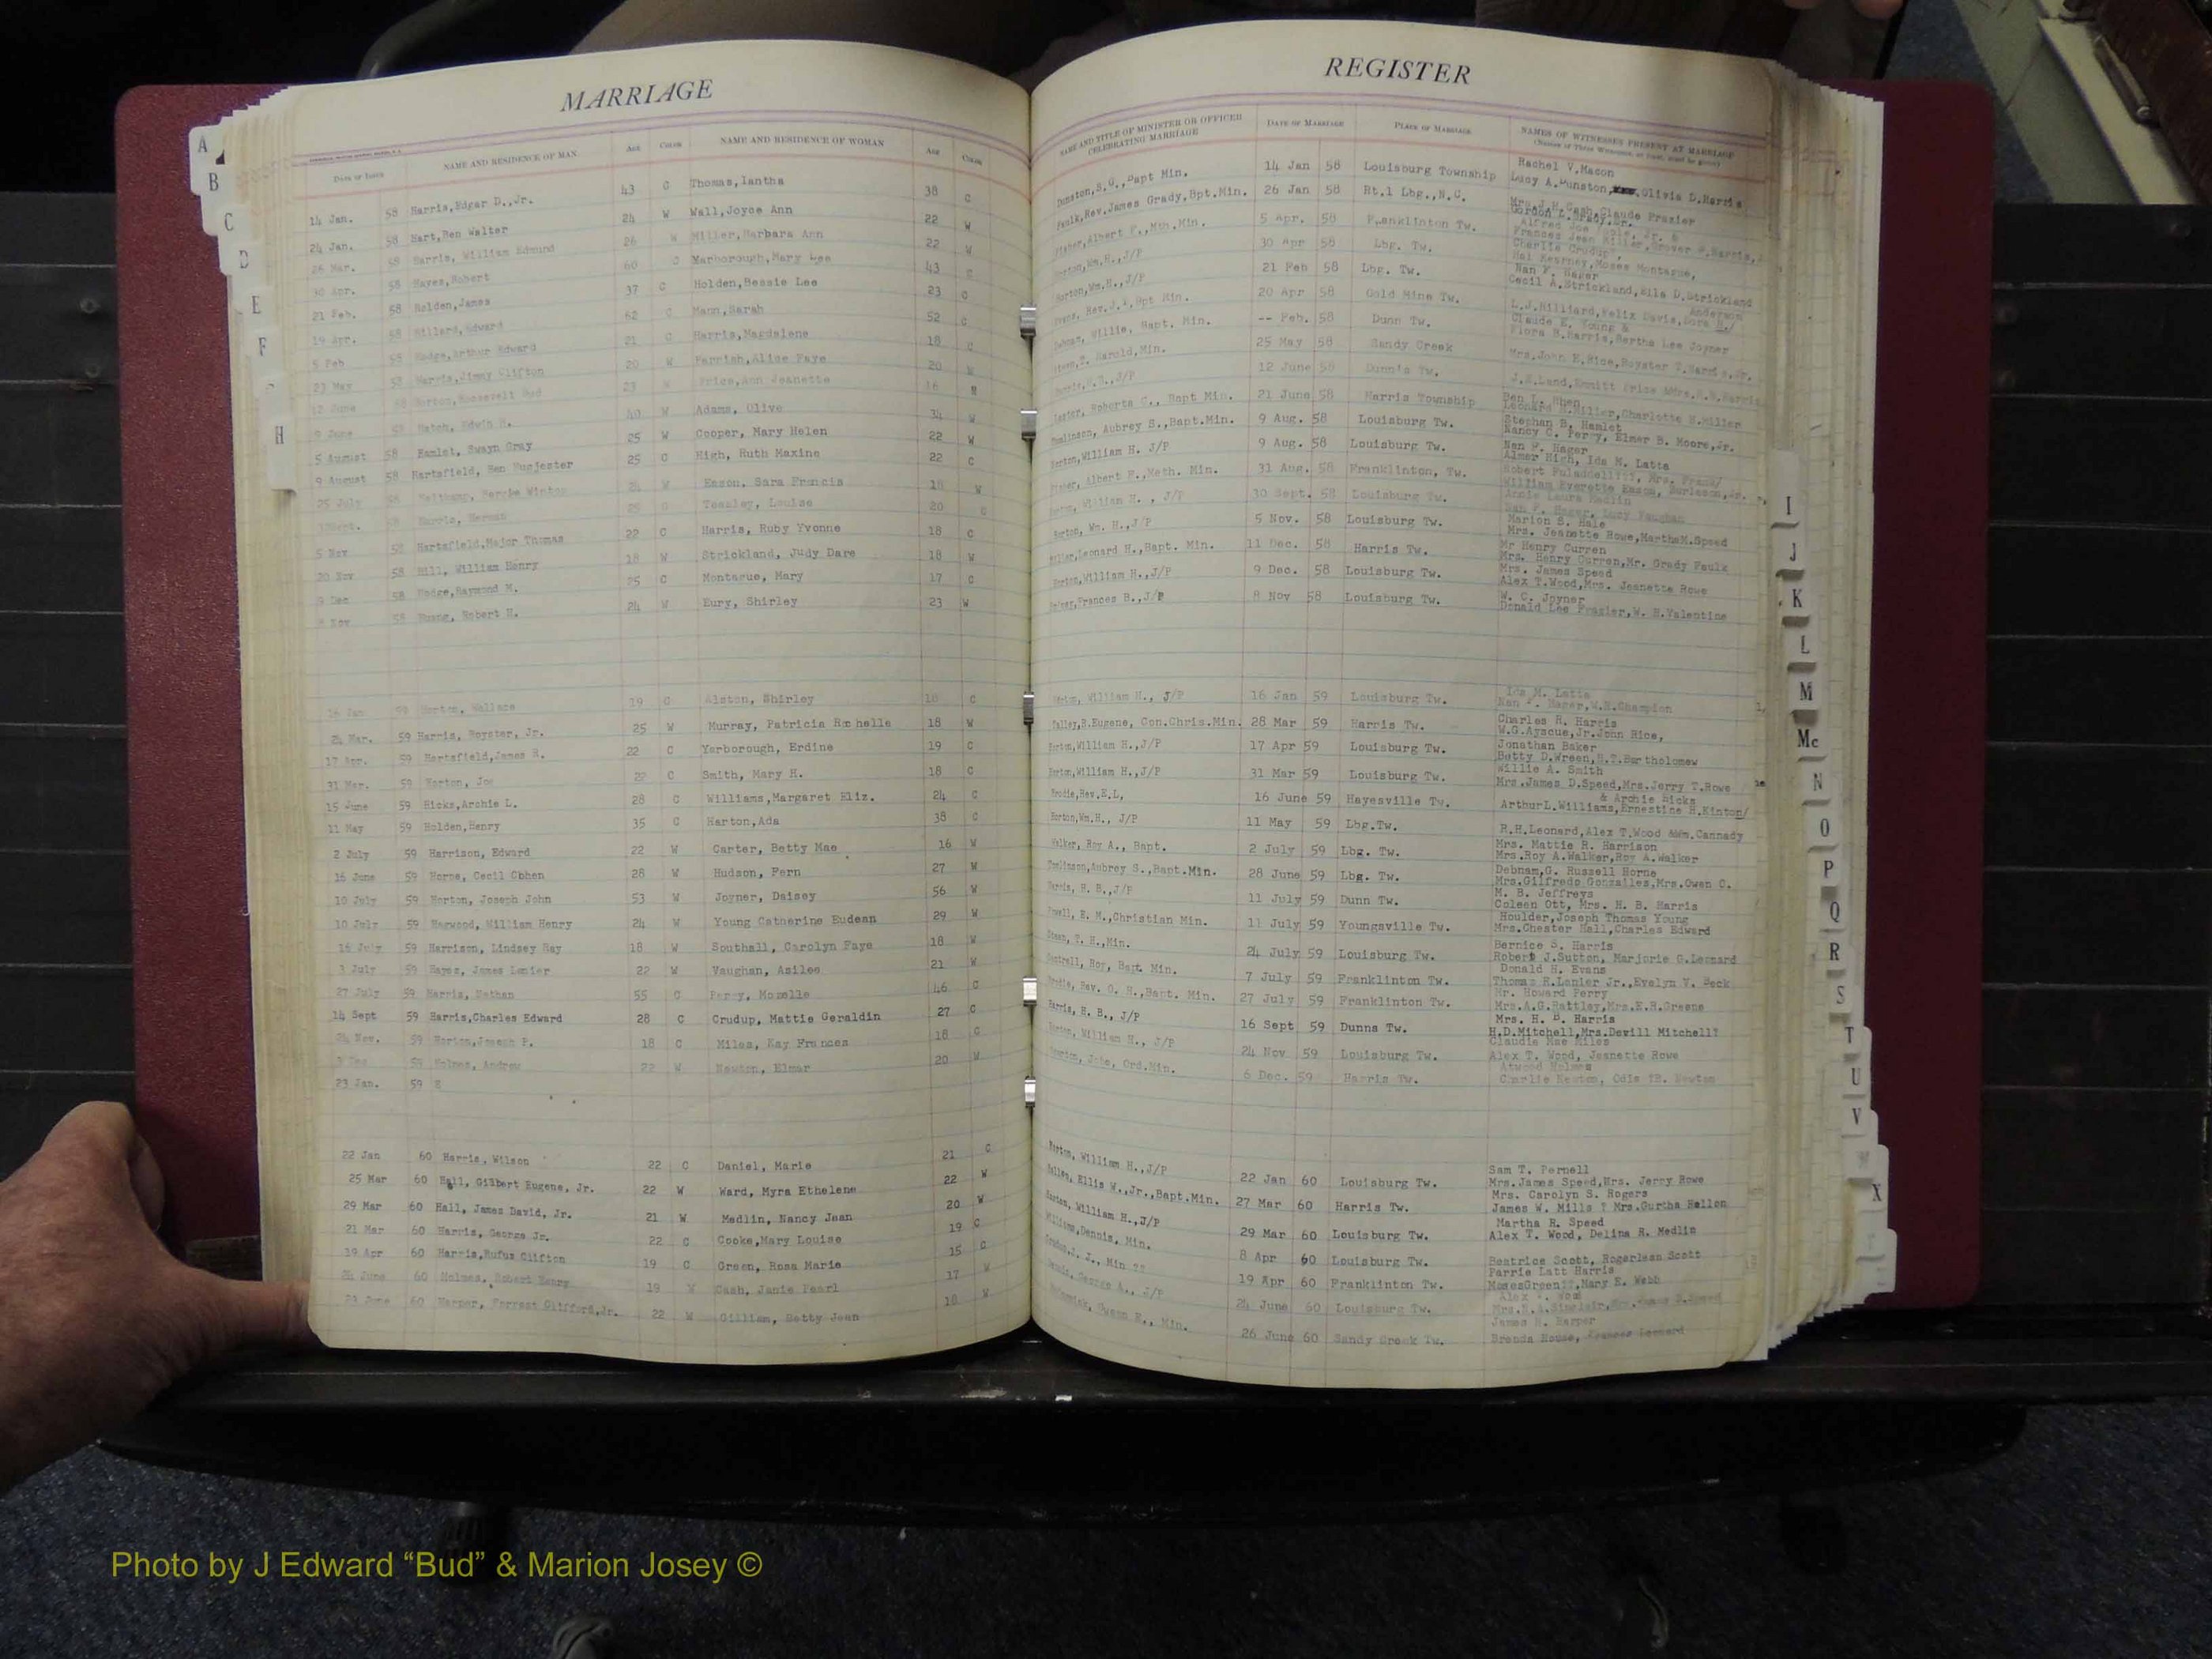 MARRIAGE
REGISTER
DATE OF ISSUE NAME AND RESIDENCE OF MAN AGE COLOR NAME AND RESIDENCE OF WOMAN AGE COLOR NAME AND TITLE OF MINISTER OR OFFICER CELEBRATING MARRIAGE DATE OF MARRIAGE PLACE OF MARRIAGE NAMES OF WITNESSES PRESENT AT MARRIAGE
14 Jan. 58 Harris,Edgar D.,Jr. 43 C Thomas,Iantha 38 C Dunston,S.G.,Bapt Min. 14 Jan 58 Louisburg Township Rachel V.Macon
Lucy A.Dunston, Olivia D.Harris
24 Jan. 58 Hart,Ben Walter 24 W Wall,Joyce Ann 22 W Faulk,Rev.James Grady,Bpt.Min. 26 Jan 58 Rt.1 Lbg.,N.C. Claude Frazier
26 Mar. 58 Harris, William Edmund 26 W Miller,Barbara Ann 22 W Fisher,Albert F.,Mth.Min. 5 Apr. 58 Franklinton Tw.
30 Apr. 58 Hayes,Robert 60 C Yarborough,Mary Lee 43 C Horton,Wm.H.,J/P 30 Apr 58 Lbg. Tw. Hal Kearney,Moses Montague,
21 Feb. 58 Holden,James 37 C Holden,Bessie Lee 23 C Horton,Wm.H.,J/P 21 Feb 58 Lbg. Tw. Nan F. Hager
Cecil A.Strickland,Elle D.Strickland
19 Apr. 58 Hillard,Edward 62 C Mann,Sarah 52 C 20 Apr 58 Gold Mine Tw. L.J.Hilliard,Felix Davis,Dora H./ Anderson
5 Feb 58 Hodge,Arthur Edward 21 C Harris,Magdalene 18 C Willie, Bapt. Min. -- Feb. 58 Dunn Tw. Claude E. Young &
Flora B.Harris,Bertha Lee Joyner
23 May 58 Harris,Jimmy Clifton 20 W Parrish,Alice Faye 20 W Harold,Min. 25 May 58 Sandy Creek Mrs.John H.Rice,Royster T.Harris,Jr.
12 June 58 Horton,Roosevelt 23 W Price,Ann Jeanette 18 W J/P 12 June 58 Dunn's Tw.
June 58 Hatch, Edwin H. 40 W Adams, Olive 34 W Roberts C., Bapt Min. 21 June 58 Harris Township Ben L.
Leonard H.Miller,Charlotte H.Miller
5 August 58 Hamlet, Swayn Gray 25 W Cooper, Mary Helen 22 W Tomlinson, Aubrey S.,Bapt.Min. 9 Aug. 58 Louisburg Tw. Stephan B. Hamlet
Nancy C. Perry, Elmer B. Moore,Jr.
9 August 58 Hartsfield, Ben Hugjester 25 C High, Ruth Maxine 22 C Horton,William H. J/P 9 Aug. 58 Louisburg Tw. Nan F. Hager
Almer High, Ida M. Latta
25 July 58 24 W Eason, Sara Francis 18 W Fisher, Albert F.,Meth. Min. 31 Aug. 58 Franklinton, Tw.
William Everette Eason, Burleson,Jr.
58 Harris, Herman Teasley, Louise 20 C Horton, William H. , J/P 30 Sept. 58 Louisburg Tw. Annie Laura Medlin
Nan F. Hager, Lucy Vaughan
5 Nov 58 Hartsfield,Major Thomas 22 C Harris, Ruby Yvonne 18 C Horton, Wm. H.,J/P 5 Nov. 58 Louisburg Tw. Marion S. Hale
Mrs. Jeanette Rowe,MarthaM.Speed
20 Nov 58 Hill, William Henry 18 W Strickland, Judy Dare 18 W Miller,Leonard H.,Bapt. Min. 11 Dec. 58 Harris Tw. Mr Henry Curren
Mrs. Henry Curren,Mr. Grady Faulk
9 Dec 58 Hodge,Raymond M. 25 C Montague, Mary 17 C Horton,William H.,J/P 9 Dec. 58 Louisburg Tw. Mrs. James Speed
Alex T.Wood,Mrs. Jeanette Rowe
8 Nov 58 Huang, Robert H. 24 W Eury, Shirley 23 W Frances B.,J/P 8 Nov 58 Louisburg Tw. W. C. Joyner
Donald Lee Frazier,W. H.Valentine
16 Jan 59 Horton, Wallace 19 C Alston, Shirley 18 C Horton, William H., J/P 16 Jan 59 Louisburg Tw. Ida M. Latta
Nan F. Hager,W.R.Champion
24 Mar. 59 Harris, Royster, Jr. 25 W Murray, Patricia Rochelle 18 W Talley,B.Eugene, Con.Chris.Min. 28 Mar 59 Harris Tw. Charles R. Harris
W.G.Ayscue,Jr.John Rice,
17 Apr. 59 Hartsfield,James R. 22 C Yarborough, Erdine 19 C Horton,William H.,J/P 17 Apr 59 Louisburg Tw. Jonathan Baker
Betty D.Wreen,H.T.Bartholomew
31 Mar. 59 Horton, Joe 22 C Smith, Mary H. 18 C Horton,William H.,J/P 31 Mar 59 Louisburg Tw. Willie A. Smith
Mrs.James D.Speed,Mrs.Jerry T.Rowe
15 June 59 Hicks,Archie L. 28 C Williams,Margaret Eliz. 24 C Brodie,Rev.E.L, 16 June 59 Hayesville Tw. & Archie Hicks
ArthurL.Williams,Ernestine H.Kinton/
11 May 59 Holden,Henry 35 C Harton,Ada 38 C Horton,Wm.H., J/P 11 May 59 Lbg.Tw. R.H.Leonard,Alex T.Wood &Wm.Cannady
2 July 59 Harrison, Edward 22 W Carter, Betty Mae 16 W Walker, Roy A., Bapt. 2 July 59 Lbg. Tw. Mrs. Mattie R. Harrison
Mrs.Roy A.Walker,Roy A.Walker
16 June 59 Horne, Cecil Obhen 28 W Hudson, Fern 27 W Tomlinson,Aubrey S.,Bapt.Min. 28 June 59 Lbg. Tw. Debnam,G. Russell Horne
Mrs.Gilfredo Gonzalles,Mrs.Owen C.
10 July 59 Horton, Joseph John 53 W Joyner, Daisey 56 W Harris, H. B.,J/P 11 July 59 Dunn Tw. M. B. Jeffreys
Coleen Ott, Mrs. H. B. Harris
10 July 59 Harwood, William Henry 24 W Young Catherine Eudean 29 W Powell, E. M.,Christian Min. 11 July 59 Youngsville Tw. Houlder,Joseph Thomas Young
Mrs.Chester Hall,Charles Edward
16 July 59 Harrison, Lindsey Ray 18 W Southall, Carolyn Faye 18 W T. H.,Min. 24 July 59 Louisburg Tw. Bernice S. Harris
Robert J.Sutton, Marjorie G.Leonard
3 July 59 Hayes, James Lanier 22 W Vaughan, Asilee 21 W Cantrell, Roy, Bapt. Min. 7 July 59 Franklinton Tw. Donald H. Evans
Thomas R.Lanier Jr.,Evelyn V. Beck
27 July 59 Harris, Nathan 55 C Perry, Mozelle 46 C Brodie, Rev. O. H.,Bapt. Min. 27 July 59 Franklinton Tw. Mr. Howard Perry
Mrs.A.G.Rattley,Mrs.E.R.Greene
14 Sept 59 Harris,Charles Edward 28 C Crudup, Mattie Geraldin 27 C Harris, H. B., J/P 16 Sept 59 Dunns Tw. Mrs. H. B. Harris
H.D.Mitchell,Mrs.Devill Mitchell?
24 Nov. 59 Horton,Joseph P. 18 C Miles, Kay Frances 18 C Horton, William H., J/P 24 Nov 59 Louisburg Tw. Claudie Mae Miles
Alex T. Wood, Jeanette Rowe
3 Dec 59 Holmes, Andrew 22 W Newton, Elmer 20 W Newton, John, Ord.Min. 6 Dec. 59 Harris Tw. Atwood Holmes
Charlie Newton, Odie ?B. Newton
23 Jan. 59 8
22 Jan 60 Harris, Wilson 22 C Daniel, Marie 21 C Horton, William H.,J/P 22 Jan 60 Louisburg Tw. Sam T. Pernell
Mrs.James Speed,Mrs. Jerry Rowe
25 Mar 60 Hall, Gilbert Eugene, Jr. 22 W Ward, Myra Ethelene 22 W Ellis W.,Jr.,Bapt.Min. 27 Mar 60 Harris Tw. Mrs. Carolyn S. Rogers
James W. Mills ? Mrs.Gurtha Hellon
29 Mar 60 Hall, James David, Jr. 21 W Medlin, Nancy Jean 20 W Horton, William H.,J/P 29 Mar 60 Louisburg Tw. Martha R. Speed
Alex T. Wood, Delina R. Medlin
21 Mar 60 Harris, George Jr. 22 C Cooke,Mary Louise 19 C Williams,Dennis, Min. 8 Apr 60 Louisburg Tw. Beatrice Scott, Rogerlean Scott
19 Apr 60 Harris,Rufus Clifton 19 C Green, Rosa Marie 15 C J., Min ?? 19 Apr 60 Franklinton Tw. Parrie Latt Harris
MosesGreen??,Mary E. Webb
24 June 60 Holmes, Robert Henry 19 W Cash, Janie Pearl 17 W George A., J/P 24 June 60 Louisburg Tw. Alex T. Wood
23 June 60 Harper, Forrest Clifford,Jr. 22 W Gilliam, Betty Jean 18 W Swann E., Min. 26 June 60 Sandy Creek Tw. James R. Harper
Brenda House, Frances Leonard
A
B
C
D
E
F
H
I
J
K
L
M
Mc
N
O
P
Q
R
S
T
U
V
W
X
Photo by J Edward “Bud” & Marion Josey ©